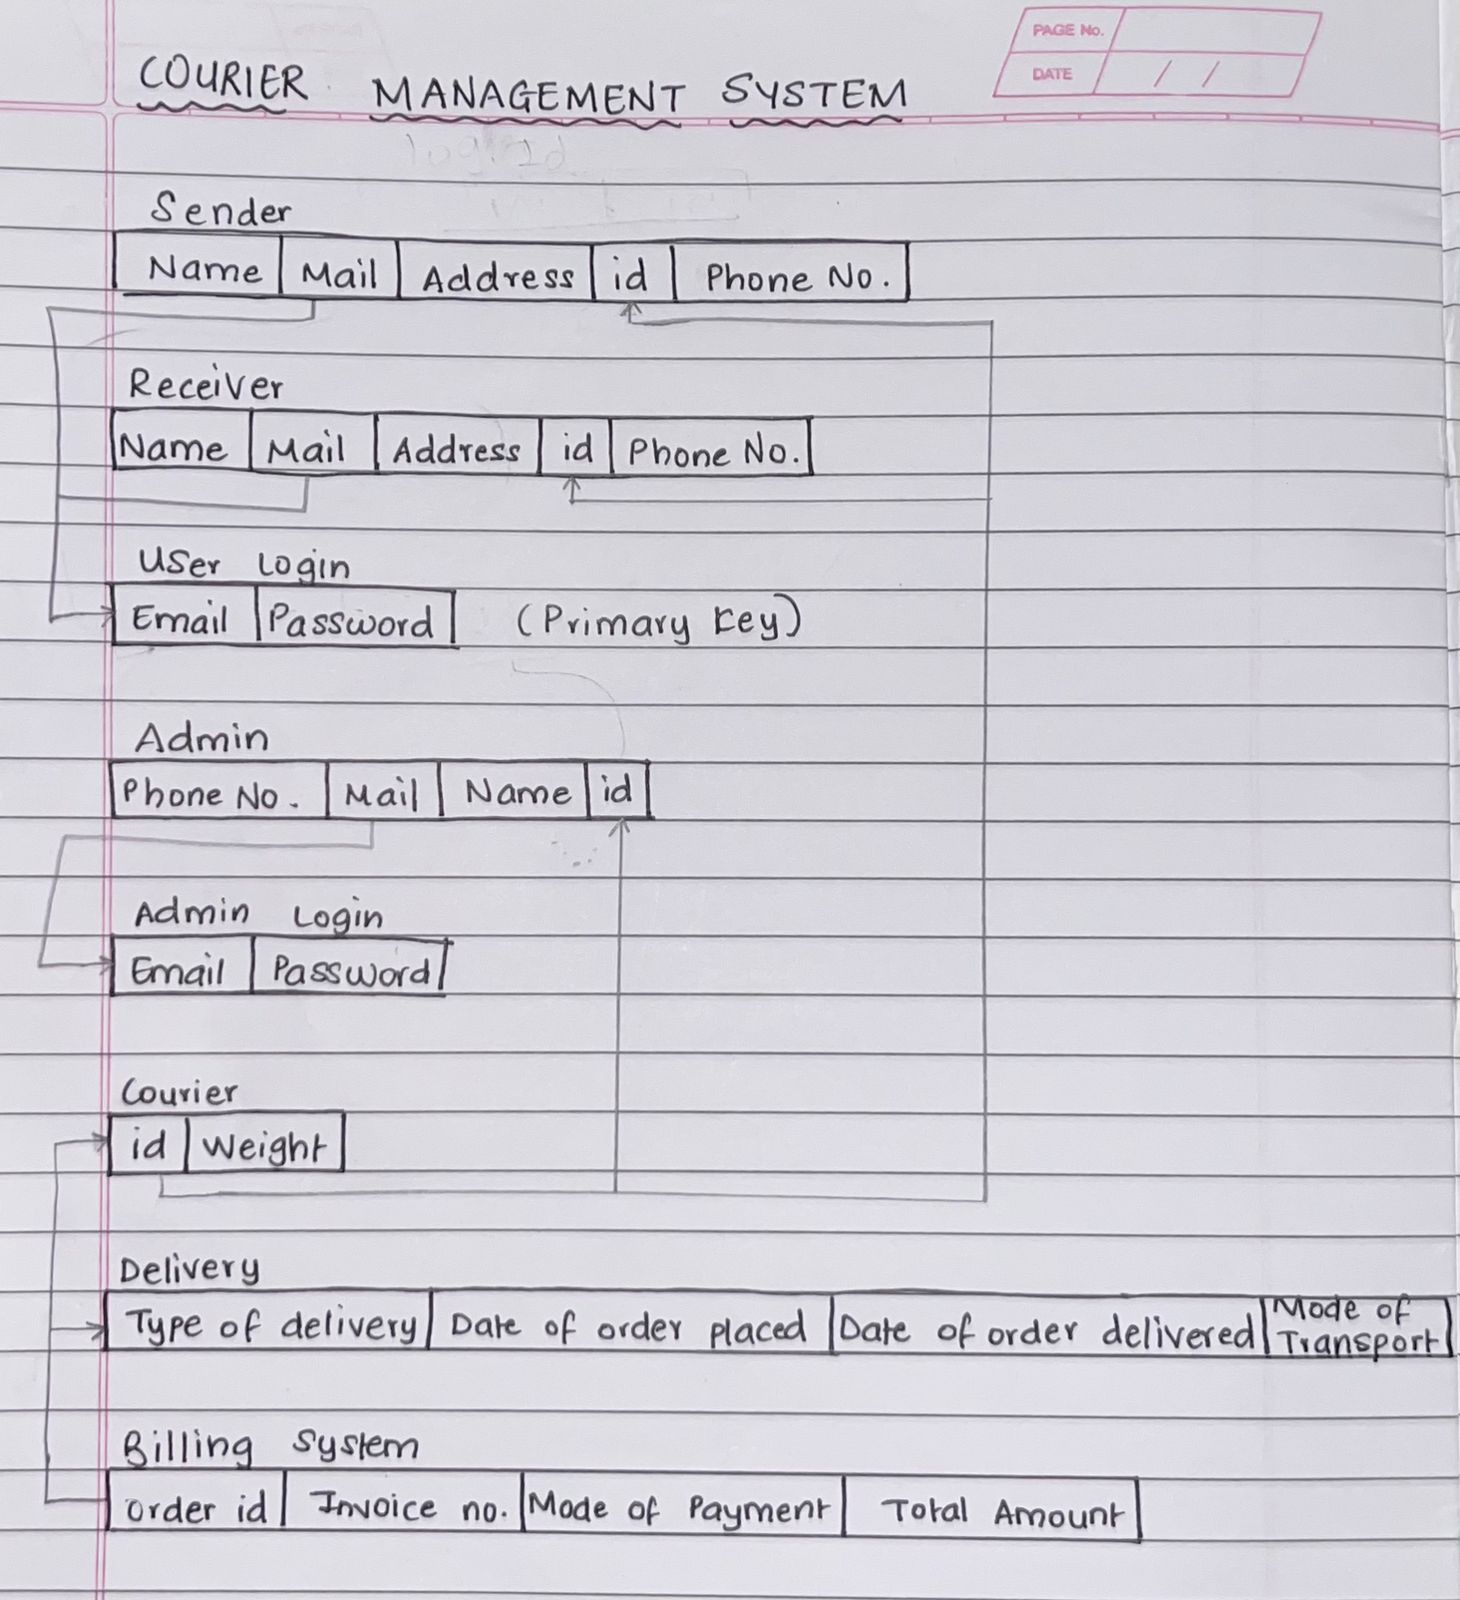 PAGE No.
DATE / /
COURIER MANAGEMENT SYSTEM
Sender
Name Mail Address id Phone No.
Receiver
Name Mail Address id Phone No.
User Login
Email Password (Primary Key)
Admin
Phone No. Mail Name id
Admin Login
Email Password
Courier
id Weight
Delivery
Type of delivery Date of order placed Date of order delivered Mode of
Transport
Billing System
Order id Invoice no. Mode of Payment Total Amount